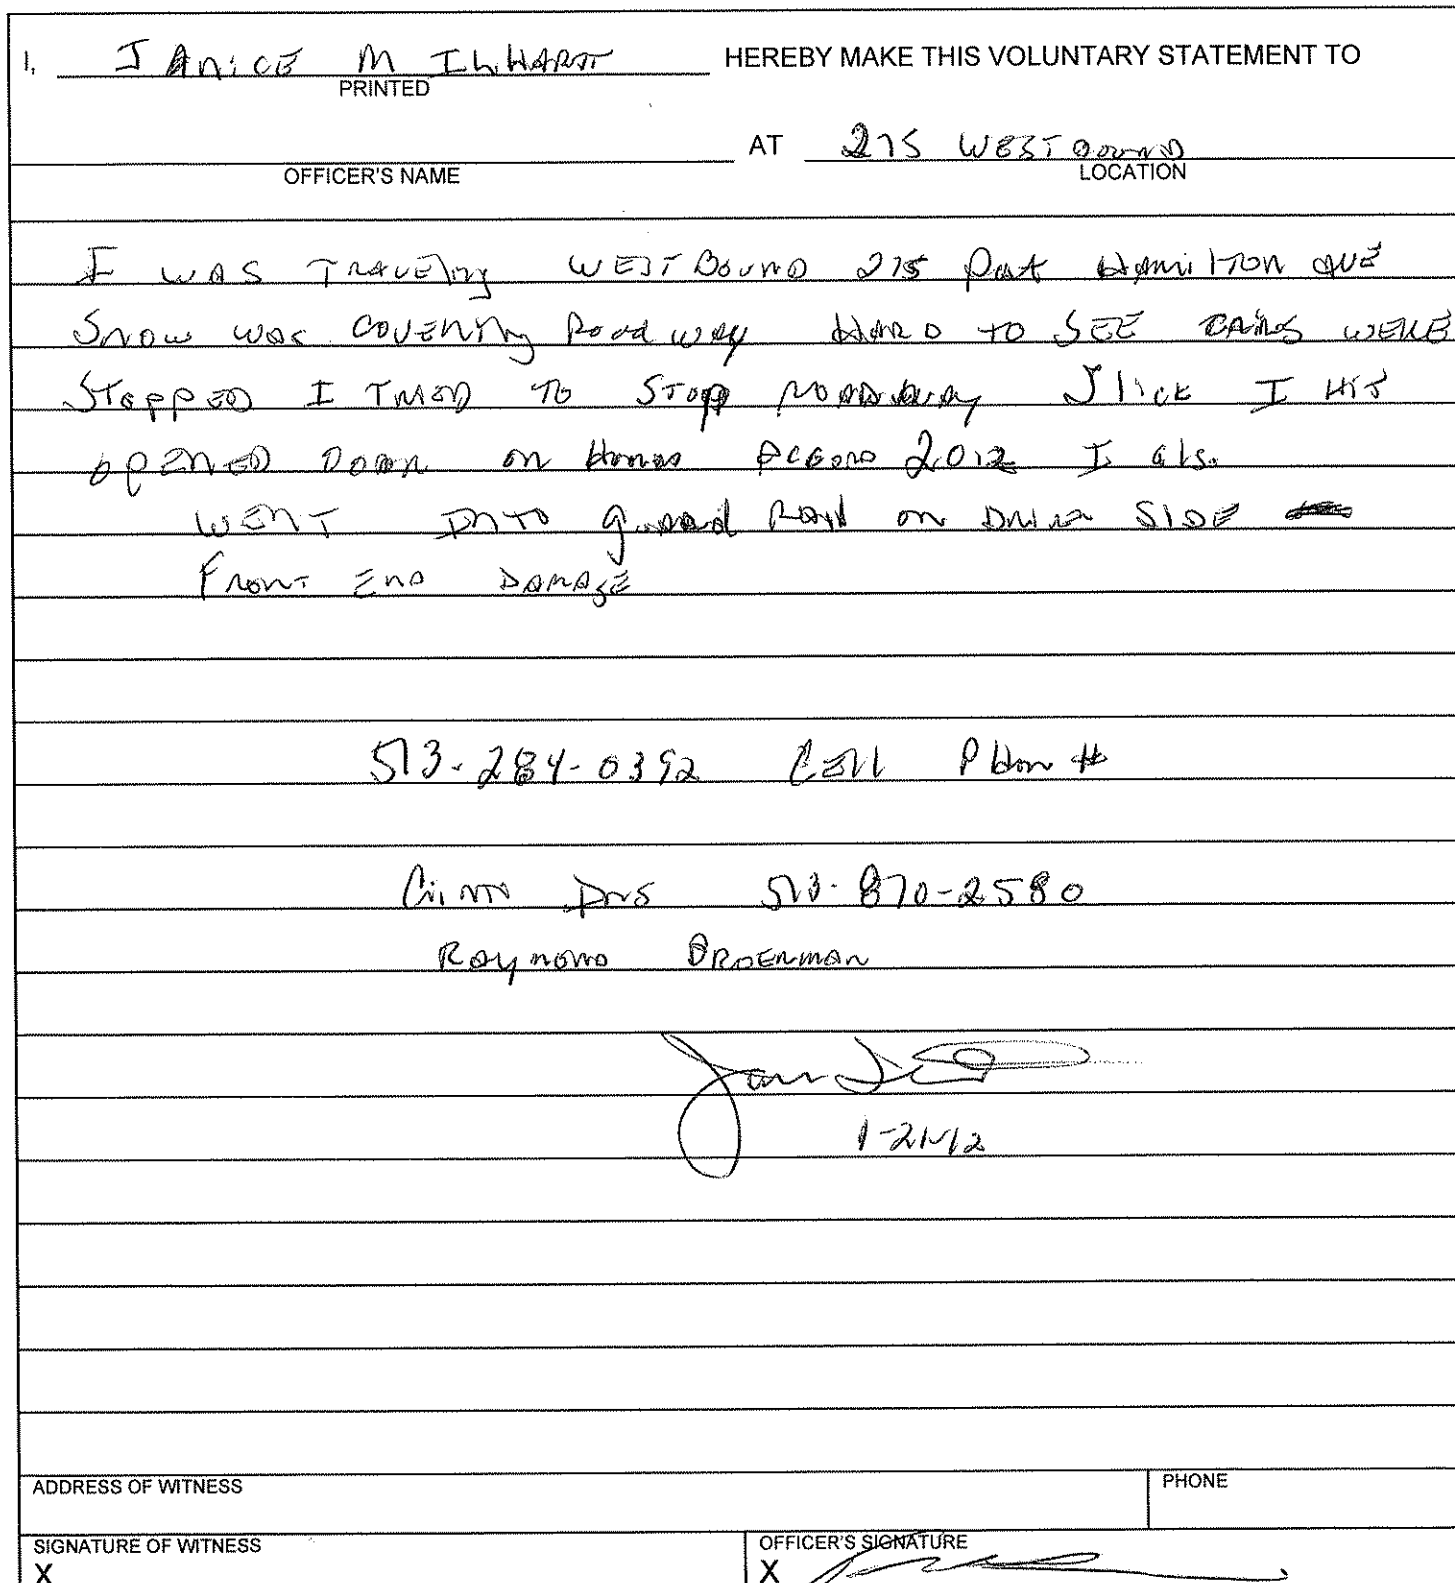 I, JANiCE M ILHARDT HEREBY MAKE THIS VOLUNTARY STATEMENT TO
PRINTED
AT 275 WESTBOUND
OFFICER'S NAME LOCATION
I WAS TRAVEling WESTBOUND 275 Past HAMilTON AVE
SNOW WAS COVERING Roadway HARD TO SEE CARS WERE
STOPPED I TRIED TO STOP ROADWAY Slick I HIT
OPENED DOOR on HONDA ACCORD 2012 I also
WENT INTO guard Rail on Driver SIDE
FRONT END DAMAGE
513-284-0392 CEll PHone #
Cinti Ins 513-870-2580
RAYMOND BROERMAN
1-21-12
ADDRESS OF WITNESS PHONE
SIGNATURE OF WITNESS OFFICER'S SIGNATURE
X X